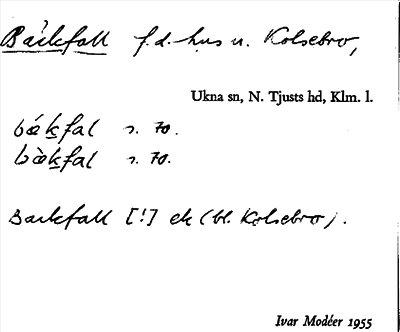 Bäckfall f.d. hus u. Kolsebro,
Ukna sn, N. Tjusts hd, Klm. l.
bákfal s. 70.
bàkfal s. 70.
Backfall [!] ek (bl. Kolsebro).
Ivar Modéer 1955